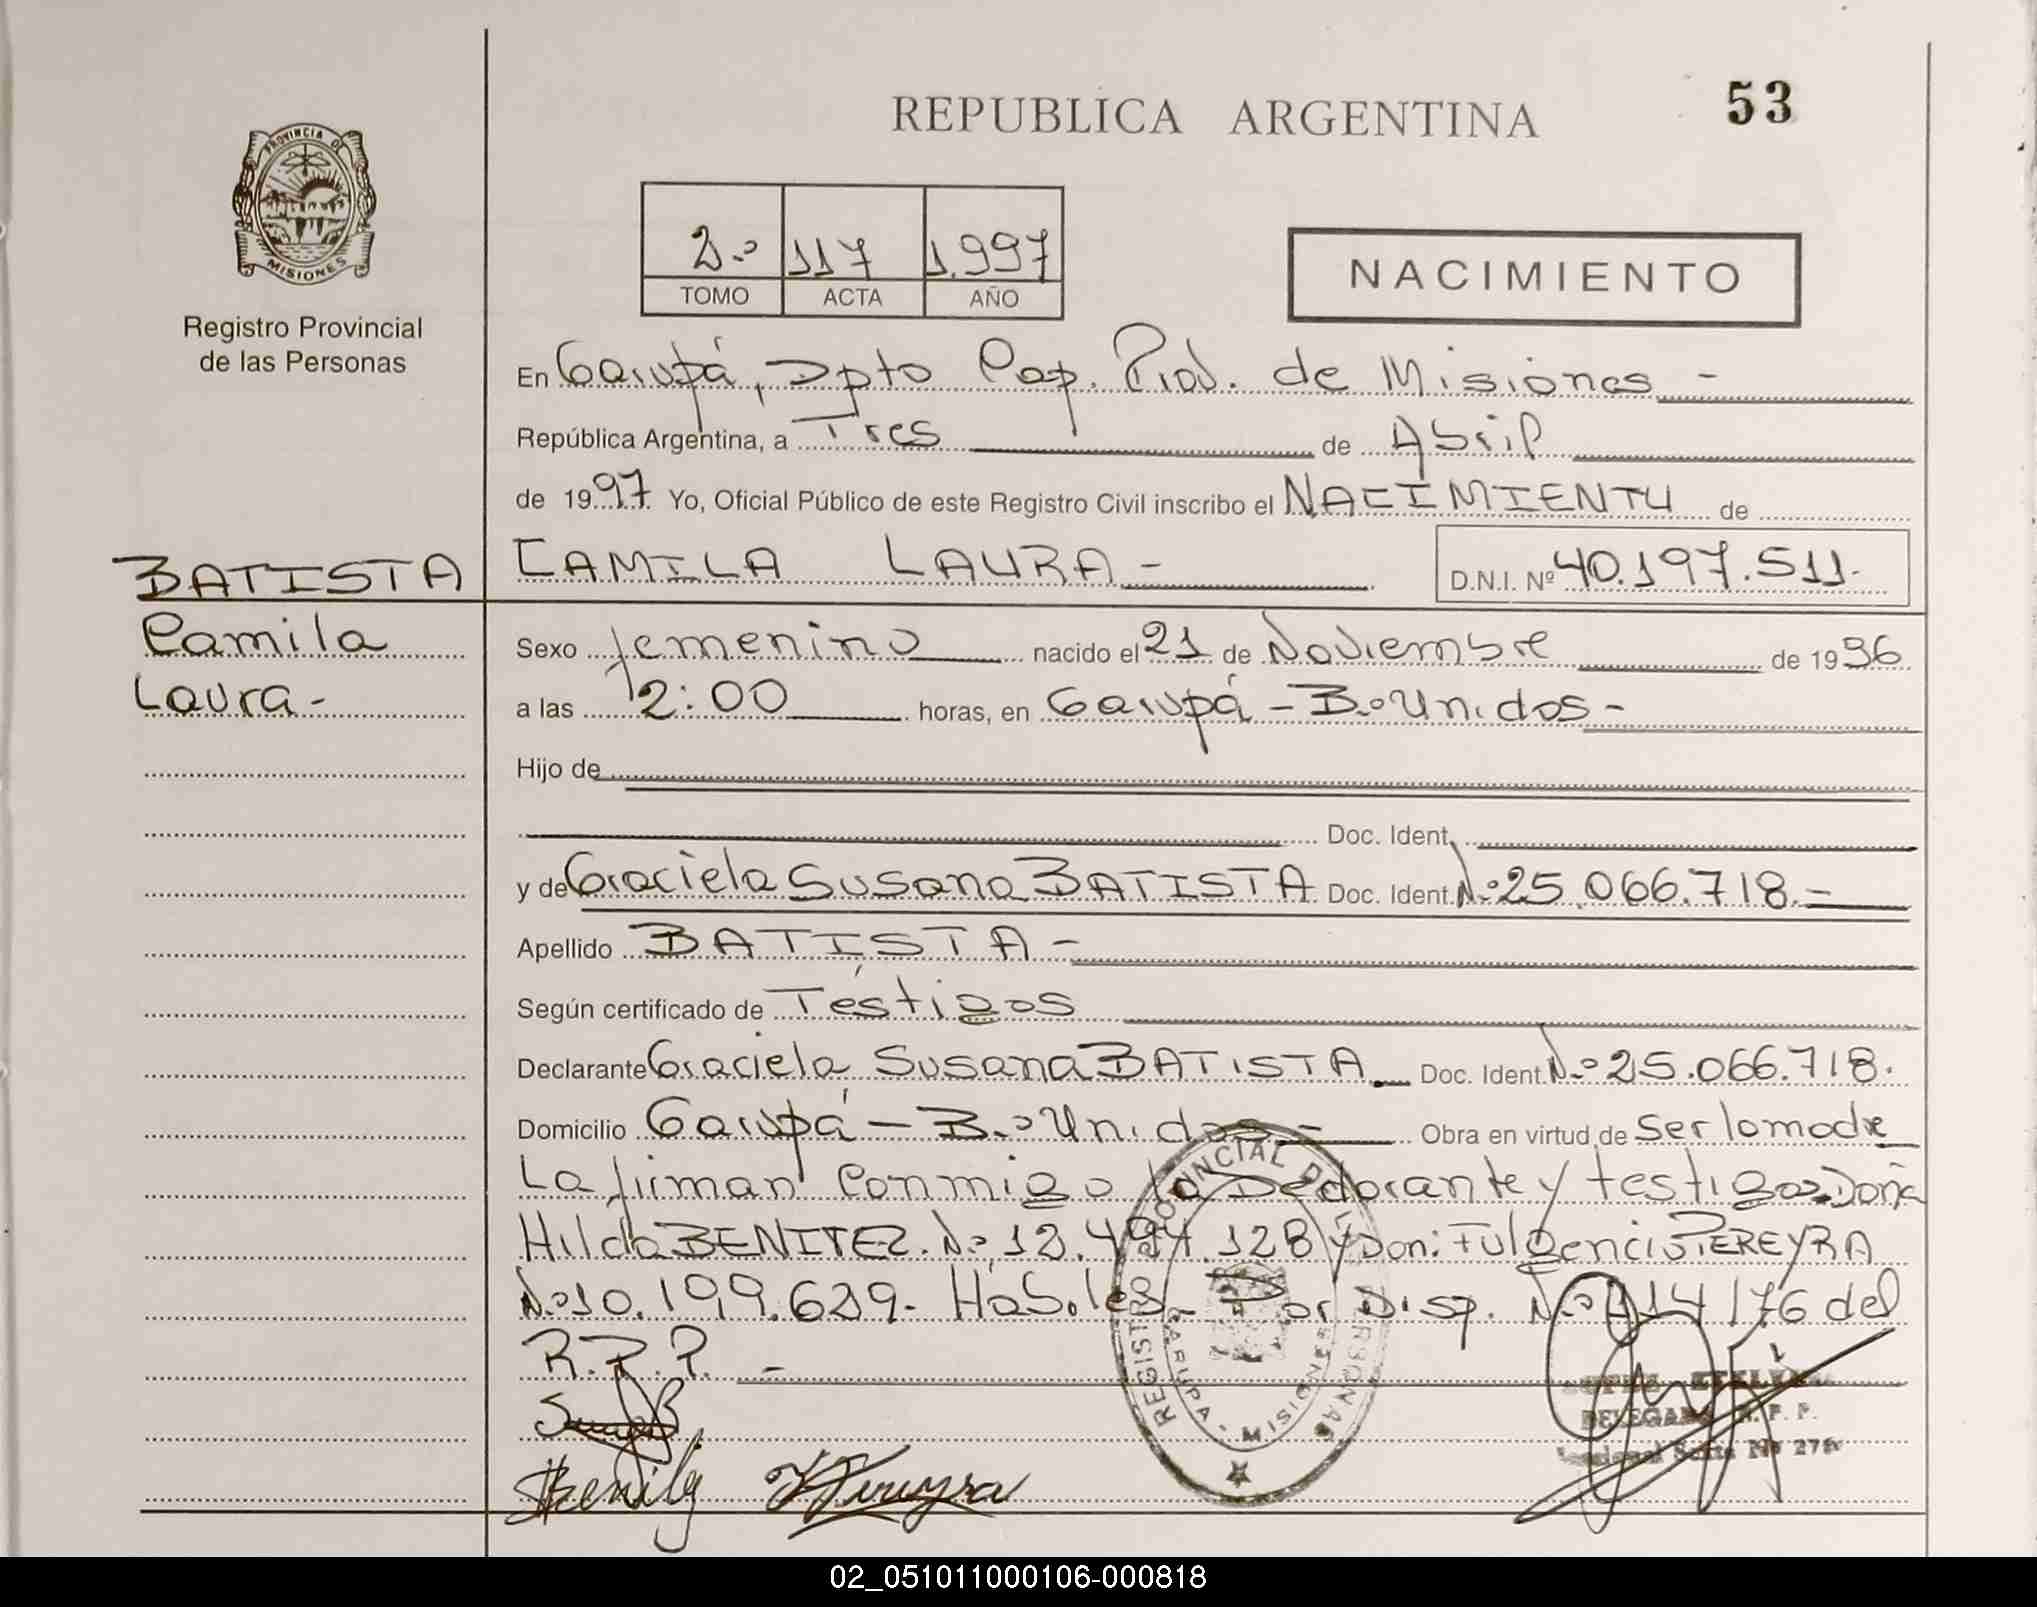 REPUBLICA ARGENTINA
53
PROVINCIA DE
MISIONES
Registro Provincial
de las Personas
2.º 117 1.997
TOMO ACTA AÑO
NACIMIENTO
En Garupá, Dpto Cap. Prov. de Misiones -
República Argentina, a Tres de Abril
de 1997 Yo, Oficial Público de este Registro Civil inscribo el NACIMIENTO de
BATISTA
CAMILA LAURA - D.N.I. Nº 40.197.511.
Camila
Laura -
Sexo femenino nacido el 21 de Noviembre de 1996
a las 12:00 horas, en Garupá - B.º Unidos -
Hijo de
Doc. Ident.
y de Graciela Susana BATISTA Doc. Ident. N.º 25.066.718. -
Apellido BATISTA -
Según certificado de Téstigos
Declarante Graciela Susana BATISTA Doc. Ident. N.º 25.066.718.
Domicilio Garupá - B.º Unidos - Obra en virtud de Ser la madre
La firman conmigo la Declarante y testigos Doña
Hilda BENITEZ. N.º 494.128 y Don: Fulgencio PEREYRA
N.º 10.199.639. Hábiles - Por Disp. N.º 414/76 del
R.P.P. -
REGISTRO PROVINCIAL DE LAS PERSONAS
GARUPA - MISIONES
DELEGADA R. P. P.
02_051011000106-000818